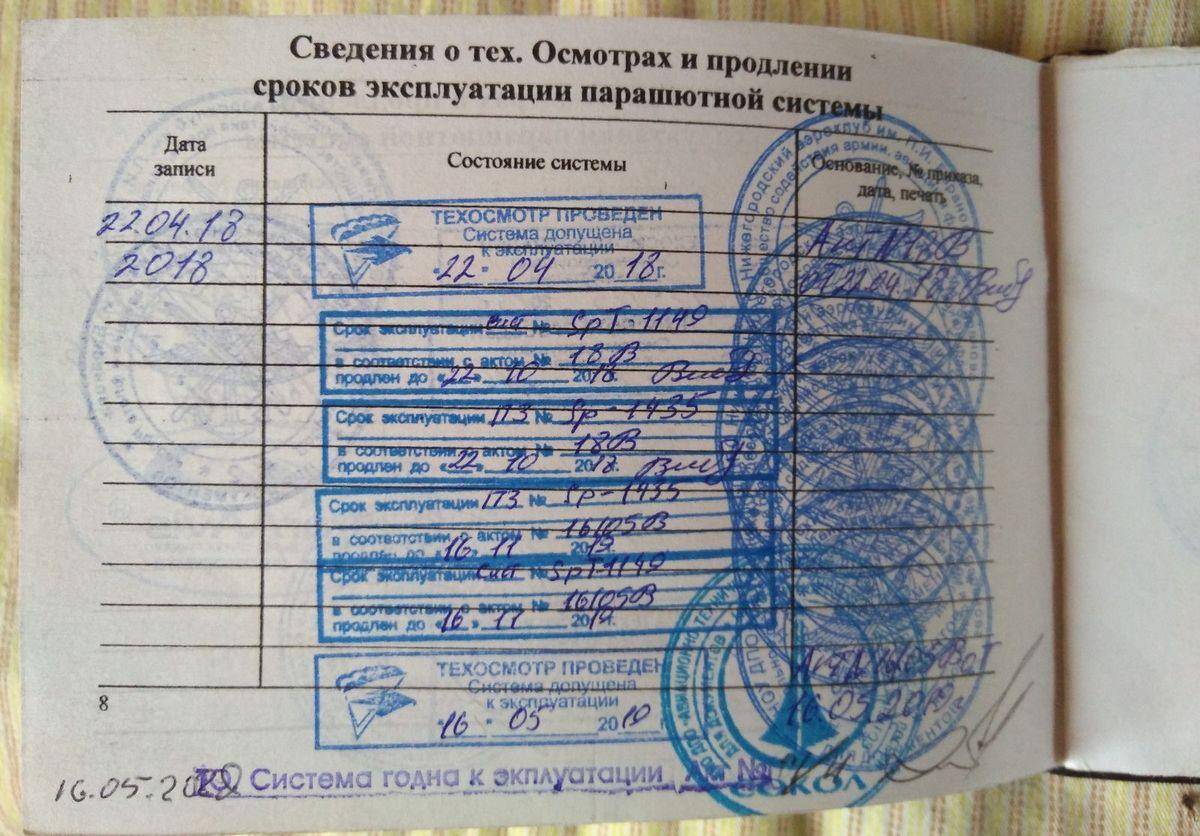 Сведения о тех. Осмотрах и продлении
сроков эксплуатации парашютной системы
Дата
записи
Состояние системы
Основание, № приказа,
дата, печать
22.04.18
2018
ТЕХОСМОТР ПРОВЕДЕН
Система допущена
к эксплуатации
"22" 04 2018г.
Акт №18В
от 22.04.18г
Срок эксплуатации сист № SpT-1149
в соответствии с актом № 18В
продлен до «22» 10 2018.
Срок эксплуатации ПЗ № Sp-1435
в соответствии с актом № 18В
продлен до «22» 10 2018.
Срок эксплуатации ПЗ № Sp-1435
в соответствии с актом № 16/05В
продлен до «16» 11 2019
Срок эксплуатации сист № SpT-1149
в соответствии с актом № 16/05В
продлен до «16» 11 2019
ТЕХОСМОТР ПРОВЕДЕН
Система допущена
к эксплуатации
"16" 05 2019
Акт № 16/05В от
16.05.2019
8
16.05.20
Система годна к эксплуатации Акт №
Нижегородский аэроклуб им. П.И.
ДЛЯ ДОКУМЕНТОВ
СОКОЛ